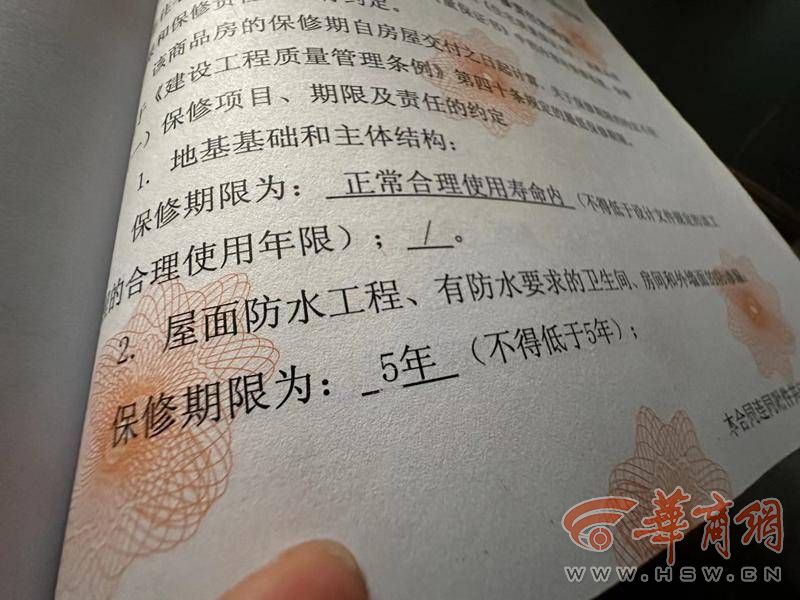 和保修责任
该商品房的保修期自房屋交付之日起计算，关于保修期限的约定不得
于《建设工程质量管理条例》第四十条规定的最低保修期限。
）保修项目、期限及责任的约定
1. 地基基础和主体结构：
保修期限为： 正常合理使用寿命内 （不得低于设计文件规定的该工
的合理使用年限）； / 。
2. 屋面防水工程、有防水要求的卫生间、房间和外墙面的防渗漏：
保修期限为： 5年 （不得低于5年）；
本合同连同附件共
華商網
WWW.HSW.CN